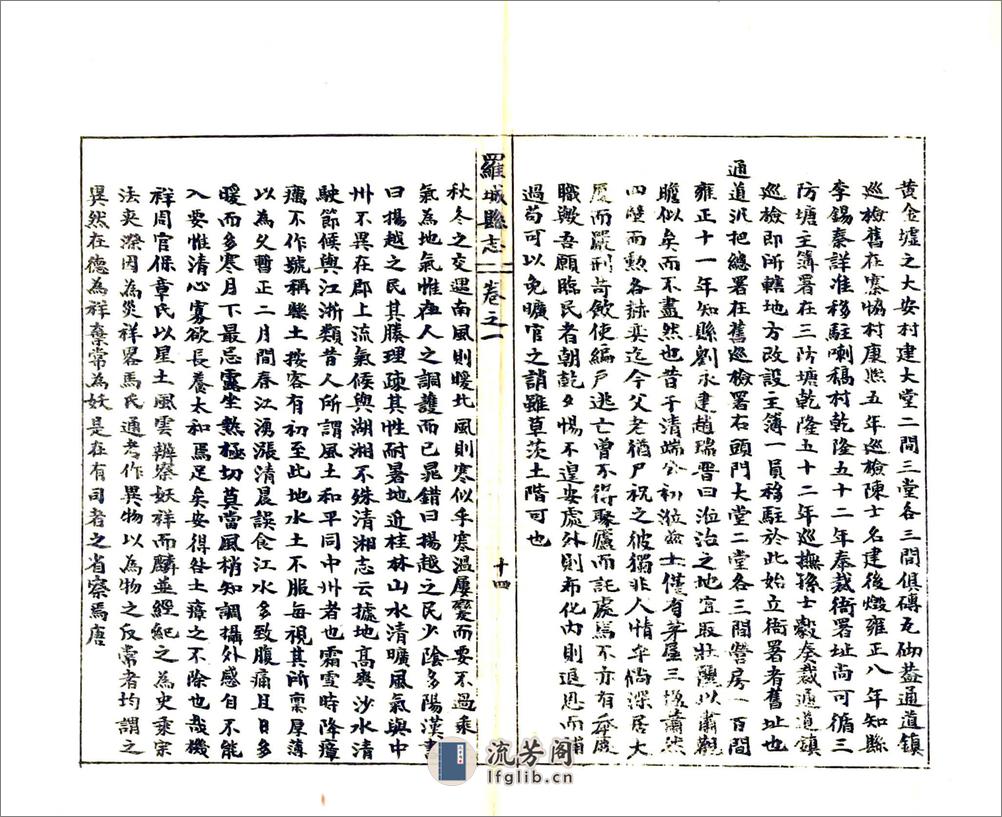 黄金墟之大安村建大堂二間三堂各三間俱磚瓦砌葢通道鎮
巡檢舊在寨恊村康熈五年巡檢陳士名建後燬雍正八年知縣
李錫秦詳准移駐喇稿村乾隆五十二年奉裁衙署址尚可循三
防塘主簿署在三防塘乾隆五十二年巡撫孫士毅奏裁通道鎮
巡檢即所轄地方改設主簿一員移駐於此始立衙署者舊址也
通道汛把總署在舊巡檢署右頭門大堂二堂各三間營房一百間
雍正十一年知縣劉永建趙瑞晋曰涖治之地宜取壯麗以肅觀
瞻似矣而不盡然也昔于清端公初涖嶮土僅有茅屋三椽蕭然
四壁而勲名赫奕迄今父老猶尸祝之彼獨非人情乎倘深居大
厦而嚴刑苛歛使編戸逃亡曾不得聚廬而託處焉不亦有
職歟吾願臨民者朝乾夕惕不遑安處外則布化内則退思而補
過苟可以免曠官之誚雖草茨土階可也
羅城縣志 卷之一 十四
秋冬之交遇南風則暖北風則寒似乎寒溫屢變而要不過乘
氣為地氣惟在人之調護而已晁錯曰揚越之民少陰多陽漢書
曰揚越之民其腠理疎其性耐暑地近桂林山水清曠風氣與中
州不異在郡上流氣候與湖湘不殊清湘志云據地高爽沙水清
駛節候與江浙類昔人所謂風土和平同中州者也霜雪時降瘴
癘不作號稱樂土按客有初至此地水土不服每視其所禀厚薄
以為久暫正二月間春江湧漲清晨誤食江水多致腹痛且日多
暖而多寒月下最忌露坐熱極切莫當風稍知調攝外感自不能
入要惟清心寡欲長養太和焉足矣安得咎土瘴之不除也哉機
祥周官保章氏以星土風雲辨察妖祥而麟並經紀之為史乘宗
法夾漈因為災祥畧馬氏通考作異物以為物之反常者均謂之
異然在德為祥棄常為妖是在有司者之省察焉唐
流芳阁
lfglib.cn